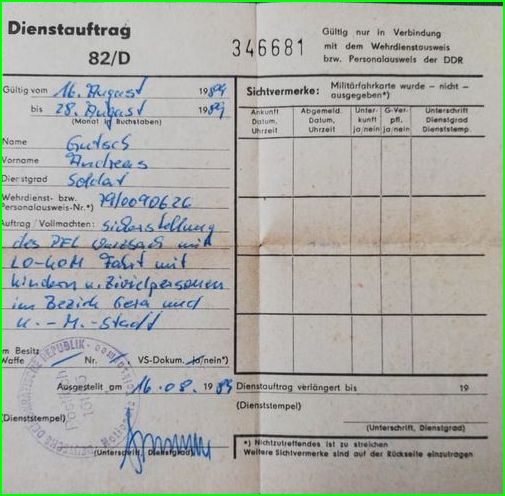 Dienstauftrag
82/D
346681
Gültig nur in Verbindung
mit dem Wehrdienstausweis
bzw. Personalausweis der DDR
Gültig vom 16. August 1989
bis 28. August 1989
(Monat in Buchstaben)
Name Gutsch
Vorname Andreas
Dienstgrad Soldat
Wehrdienst- bzw.
Personalausweis-Nr.*)
Auftrag / Vollmachten: Sicherstellung
des PFL mit
LO-KOM Fahrt mit
Kindern u. Zivilpersonen
im Bezirk Gera und
K.-M.-Stadt
Im Besitz
Waffe Nr. VS-Dokum. ja/nein*)
Ausgestellt am 16.08. 1989
(Dienststempel)
(Unterschrift, Dienstgrad)
Sichtvermerke: Militärfahrkarte wurde – nicht –
ausgegeben*)
Ankunft Datum, Uhrzeit
Abgemeld. Datum, Uhrzeit
Unterkunft ja/nein
G.-Verpfl. ja/nein
Unterschrift Dienstgrad Dienststemp.
Dienstauftrag verlängert bis 19
(Dienststempel)
(Unterschrift, Dienstgrad)
*) Nichtzutreffendes ist zu streichen
Weitere Sichtvermerke sind auf der Rückseite einzutragen